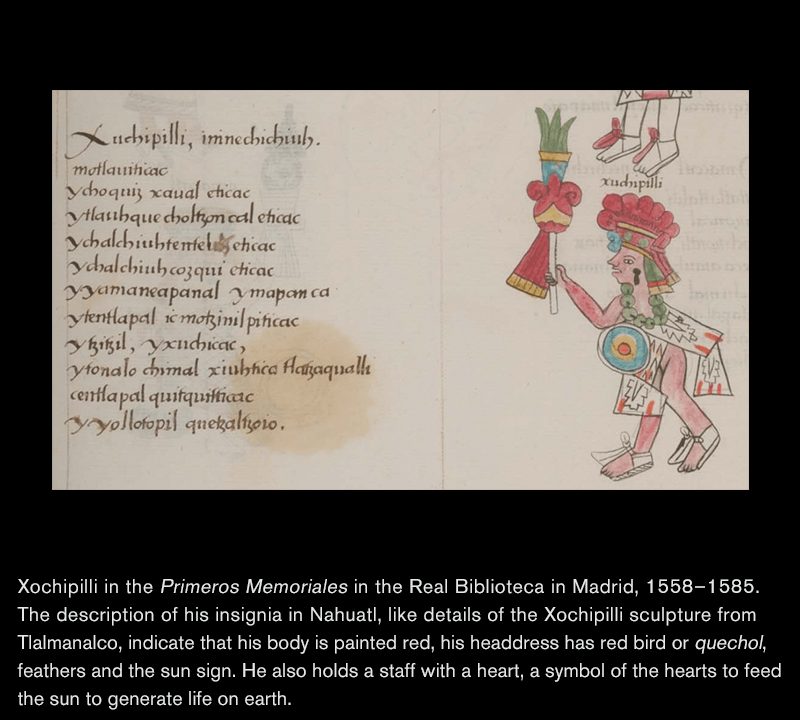 Xuchipilli, imnechichiuh.
motlauiticac
ychoquiz xaual eticac
ytlauhquecholtzoncal eticac
ychalchiuhtentel eticac
ychalchiuhcozqui eticac
yyamaneapanal ymapanca
ytentlapal ic motzinilpiticac
ytzitzil, yxuchicac,
ytonalo chimal xiuhtica tlatzaqualli
centlapal quitquitticac
yyollotopil quetzaltzoio.
xuchipilli
Xochipilli in the Primeros Memoriales in the Real Biblioteca in Madrid, 1558–1585.
The description of his insignia in Nahuatl, like details of the Xochipilli sculpture from
Tlalmanalco, indicate that his body is painted red, his headdress has red bird or quechol,
feathers and the sun sign. He also holds a staff with a heart, a symbol of the hearts to feed
the sun to generate life on earth.